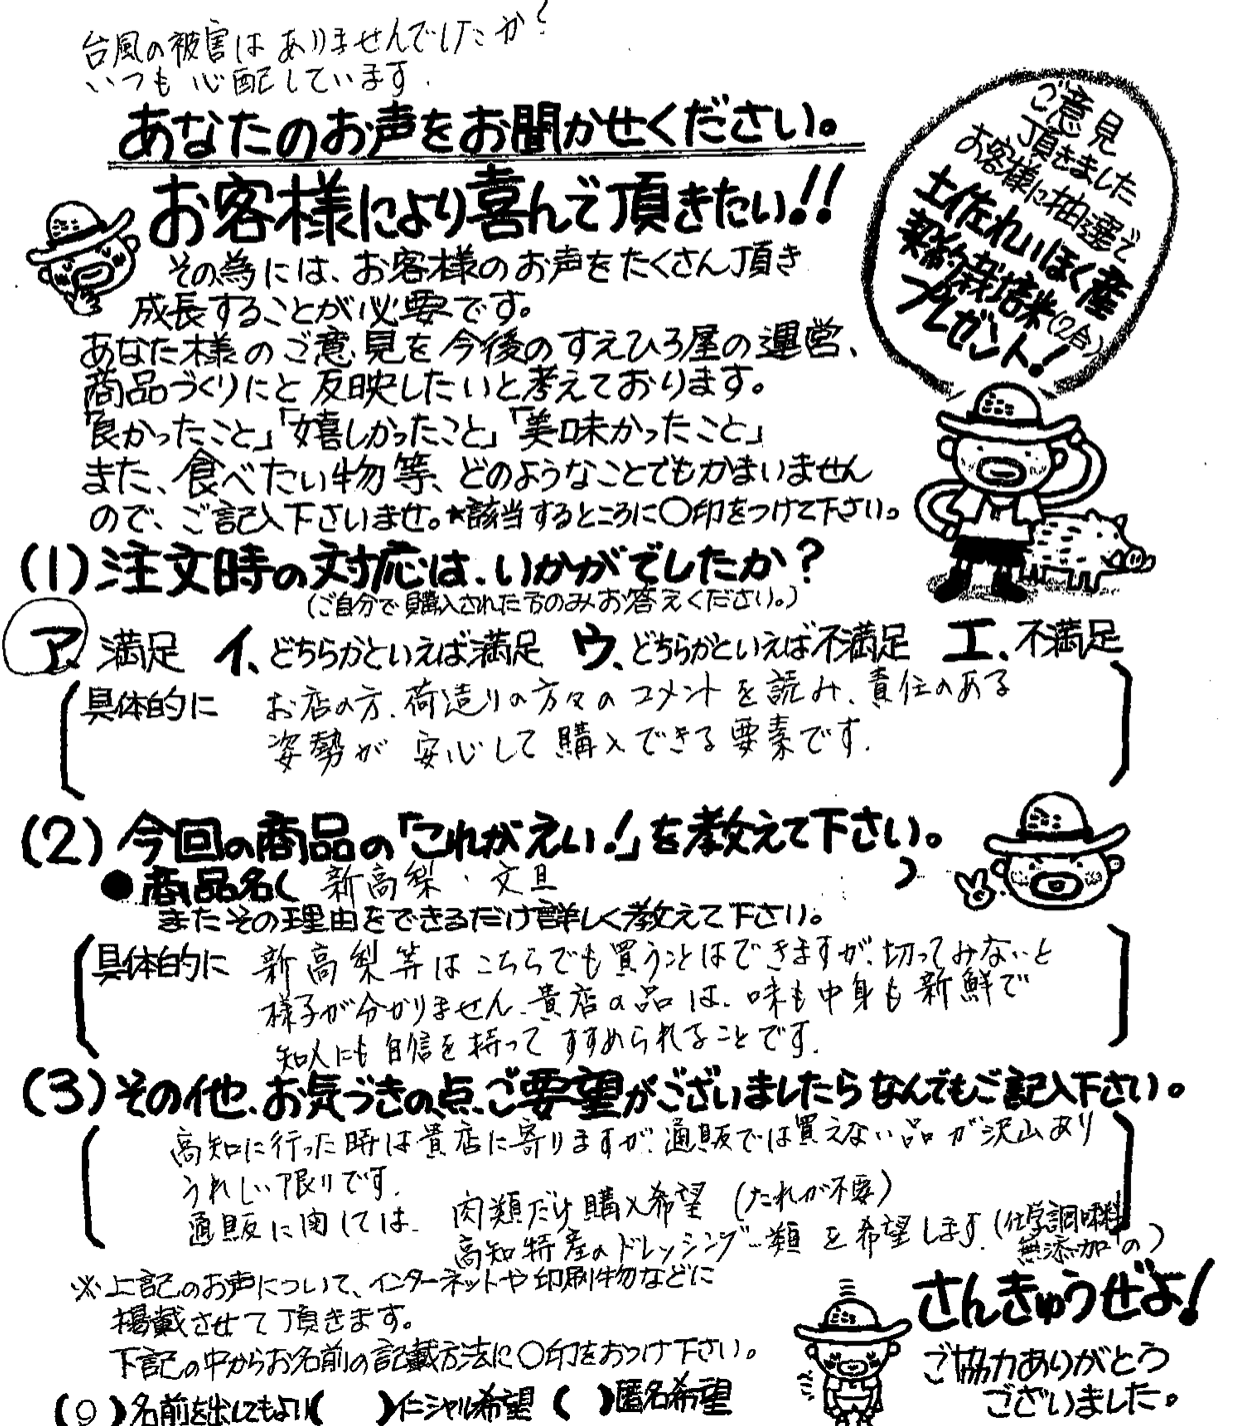 台風の被害はありませんでしたか?
いつも心配しています.
あなたのお声をお聞かせください。
お客様により喜んで頂きたい!!
ご意見
頂きました
お客様に抽選で
土佐れいほく産
契約栽培米(2合)
プレゼント!
その為には、お客様のお声をたくさん頂き
成長することが必要です。
あなた様のご意見を今後のすえひろ屋の運営、
商品づくりにと反映したいと考えております。
「良かったこと」「嬉しかったこと」「美味かったこと」
また、食べたい物等、どのようなことでもかまいません
ので、ご記入下さいませ。*該当するところに〇印をつけて下さい。
(1)注文時の対応は、いかがでしたか?
(ご自分で購入された方のみお答えください。)
ア、満足 イ、どちらかといえば満足 ウ、どちらかといえば不満足 エ、不満足
具体的に お店の方、荷造りの方々のコメントを読み、責任のある
姿勢が 安心して購入できる要素です.
(2)今回の商品の「これがえい!」を教えて下さい。
●商品名( 新高梨・文旦 )
またその理由をできるだけ詳しく教えて下さい。
具体的に 新高梨等はこちらでも買うことはできますが、切ってみないと
様子が分かりません、貴店の品は、味も中身も新鮮で
知人にも自信を持ってすすめられることです.
(3)その他、お気づきの点、ご要望がございましたらなんでもご記入下さい。
高知に行った時は貴店に寄りますが、通販では買えない品が沢山あり
うれしい限りです.
通販に関しては、肉類だけ購入希望(たれが不要)
高知特産のドレッシング類を希望します.(化学調味料
無添加の)
※上記のお声について、インターネットや印刷物などに
掲載させて頂きます。
下記の中からお名前の記載方法に〇印をおつけ下さい。
(〇)名前を出してもよい( )イニシャル希望( )匿名希望
さんきゅうぜよ!
ご協力ありがとう
ございました。